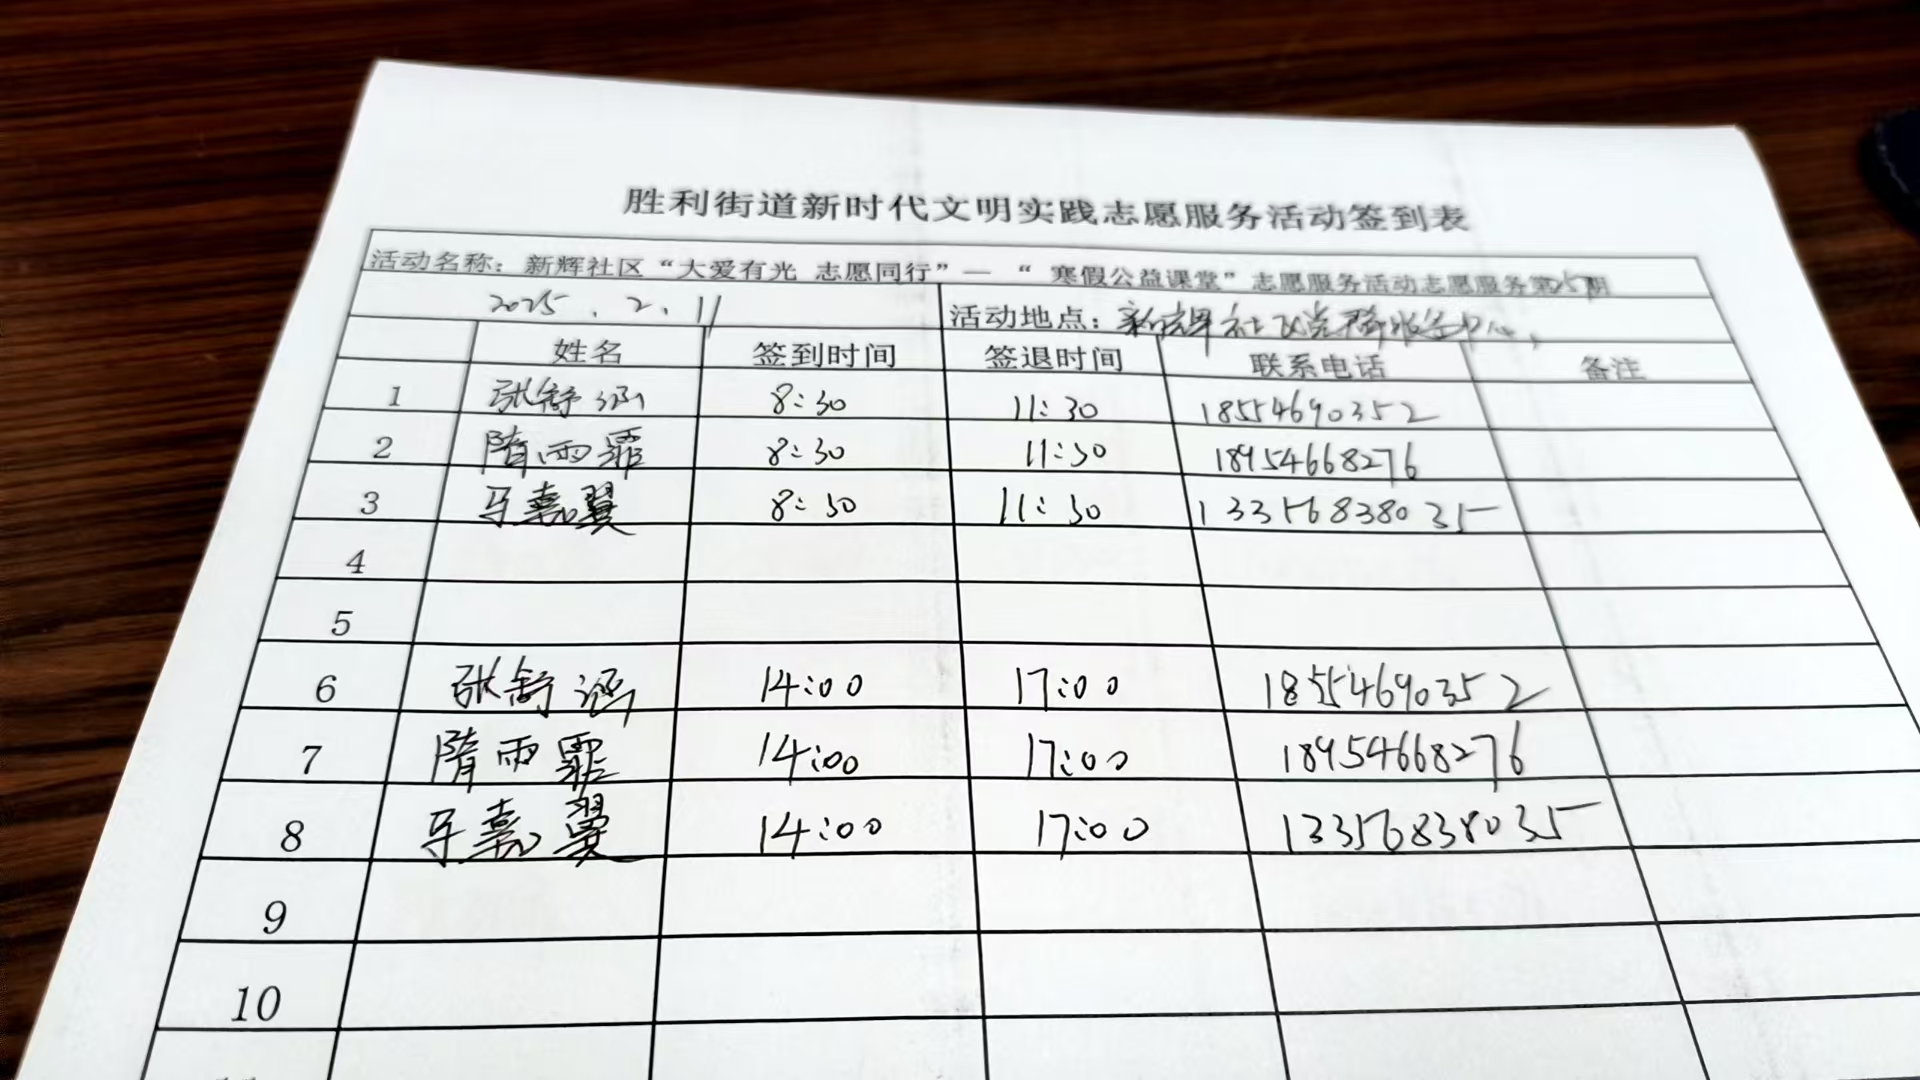 胜利街道新时代文明实践志愿服务活动签到表
活动名称：新辉社区“大爱有光 志愿同行”—“ 寒假公益课堂”志愿服务活动志愿服务第 期
2025.2.11 活动地点：新辉社区党群服务中心
姓名 签到时间 签退时间 联系电话 备注
1 张舒涵 8:30 11:30 18554690352
2 隋雨霏 8:30 11:30 18954668276
3 马嘉翼 8:30 11:30 13356838035
4
5
6 张舒涵 14:00 17:00 18554690352
7 隋雨霏 14:00 17:00 18954668276
8 马嘉翼 14:00 17:00 13356838035
9
10